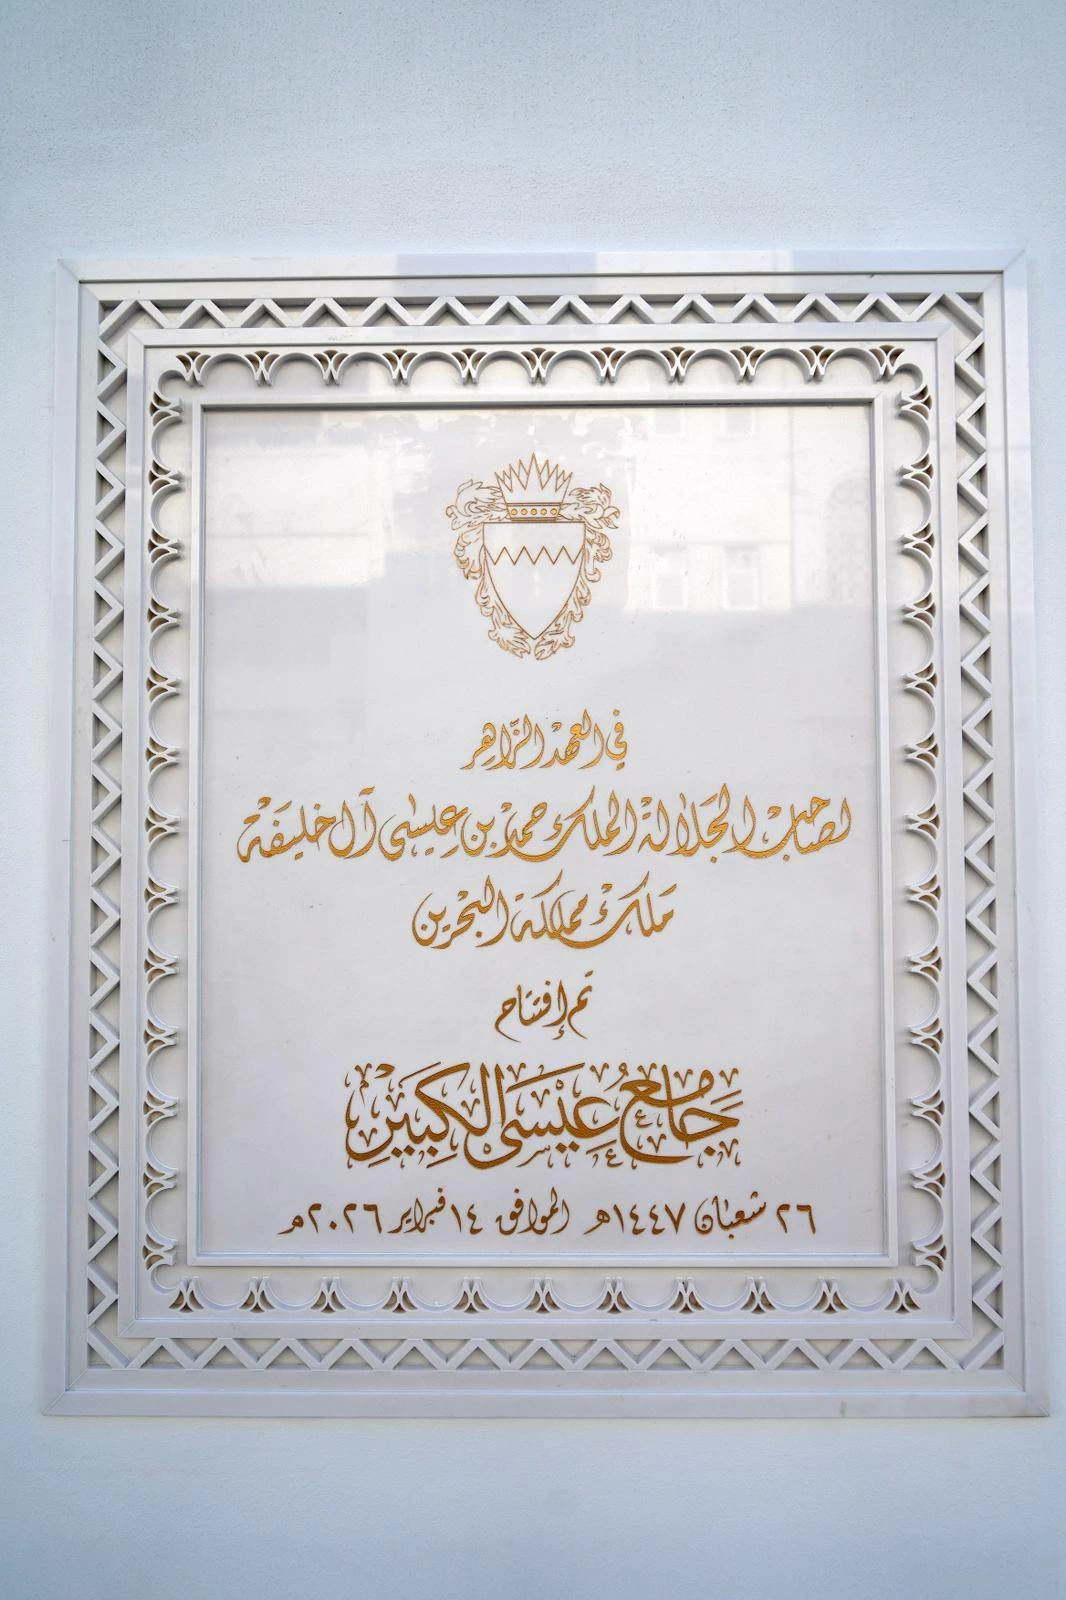 في العهد الزَّاهِر
لصاحب الجَلالة الملك حمد بن عِيسى آل خليفَة
مَلك مملكة البحرين
تم إفتتاح
جَامِعُ عِيْسَى الكَبِيْرِ
٢٦ شعبان ١٤٤٧هـ الموافق ١٤ فبراير ٢٠٢٦م